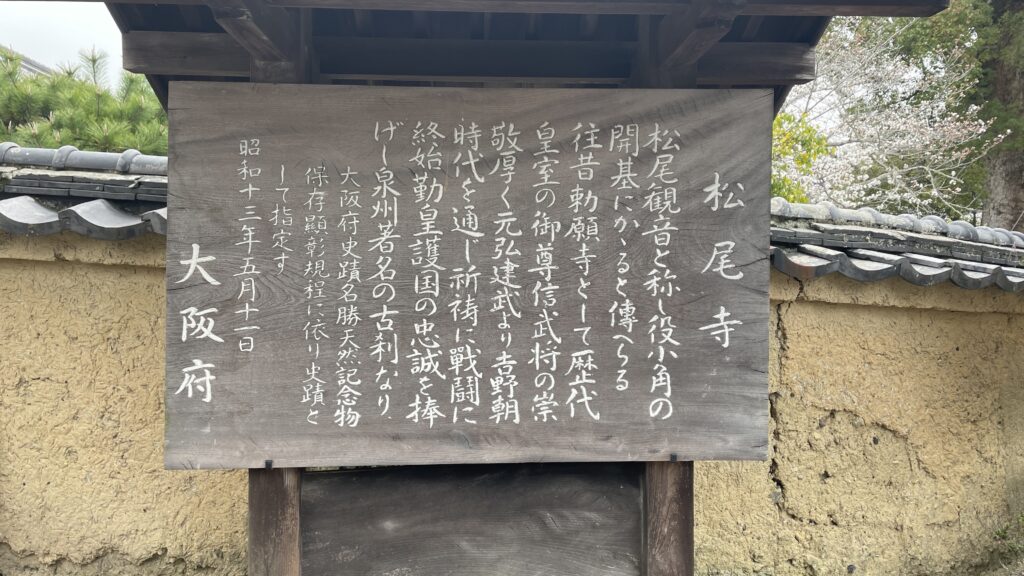 松尾寺
松尾観音と称し役小角の
開基にかゝると傳へらる
往昔勅願寺として歴代
皇室の御尊信武将の崇
敬厚く元弘建武より吉野朝
時代を通じ祈祷に戰闘に
終始勤皇護国の忠誠を捧
げし泉州著名の古刹なり
大阪府史蹟名勝天然記念物
保存顕彰規程に依り史蹟と
して指定す
昭和十三年五月十一日
大阪府